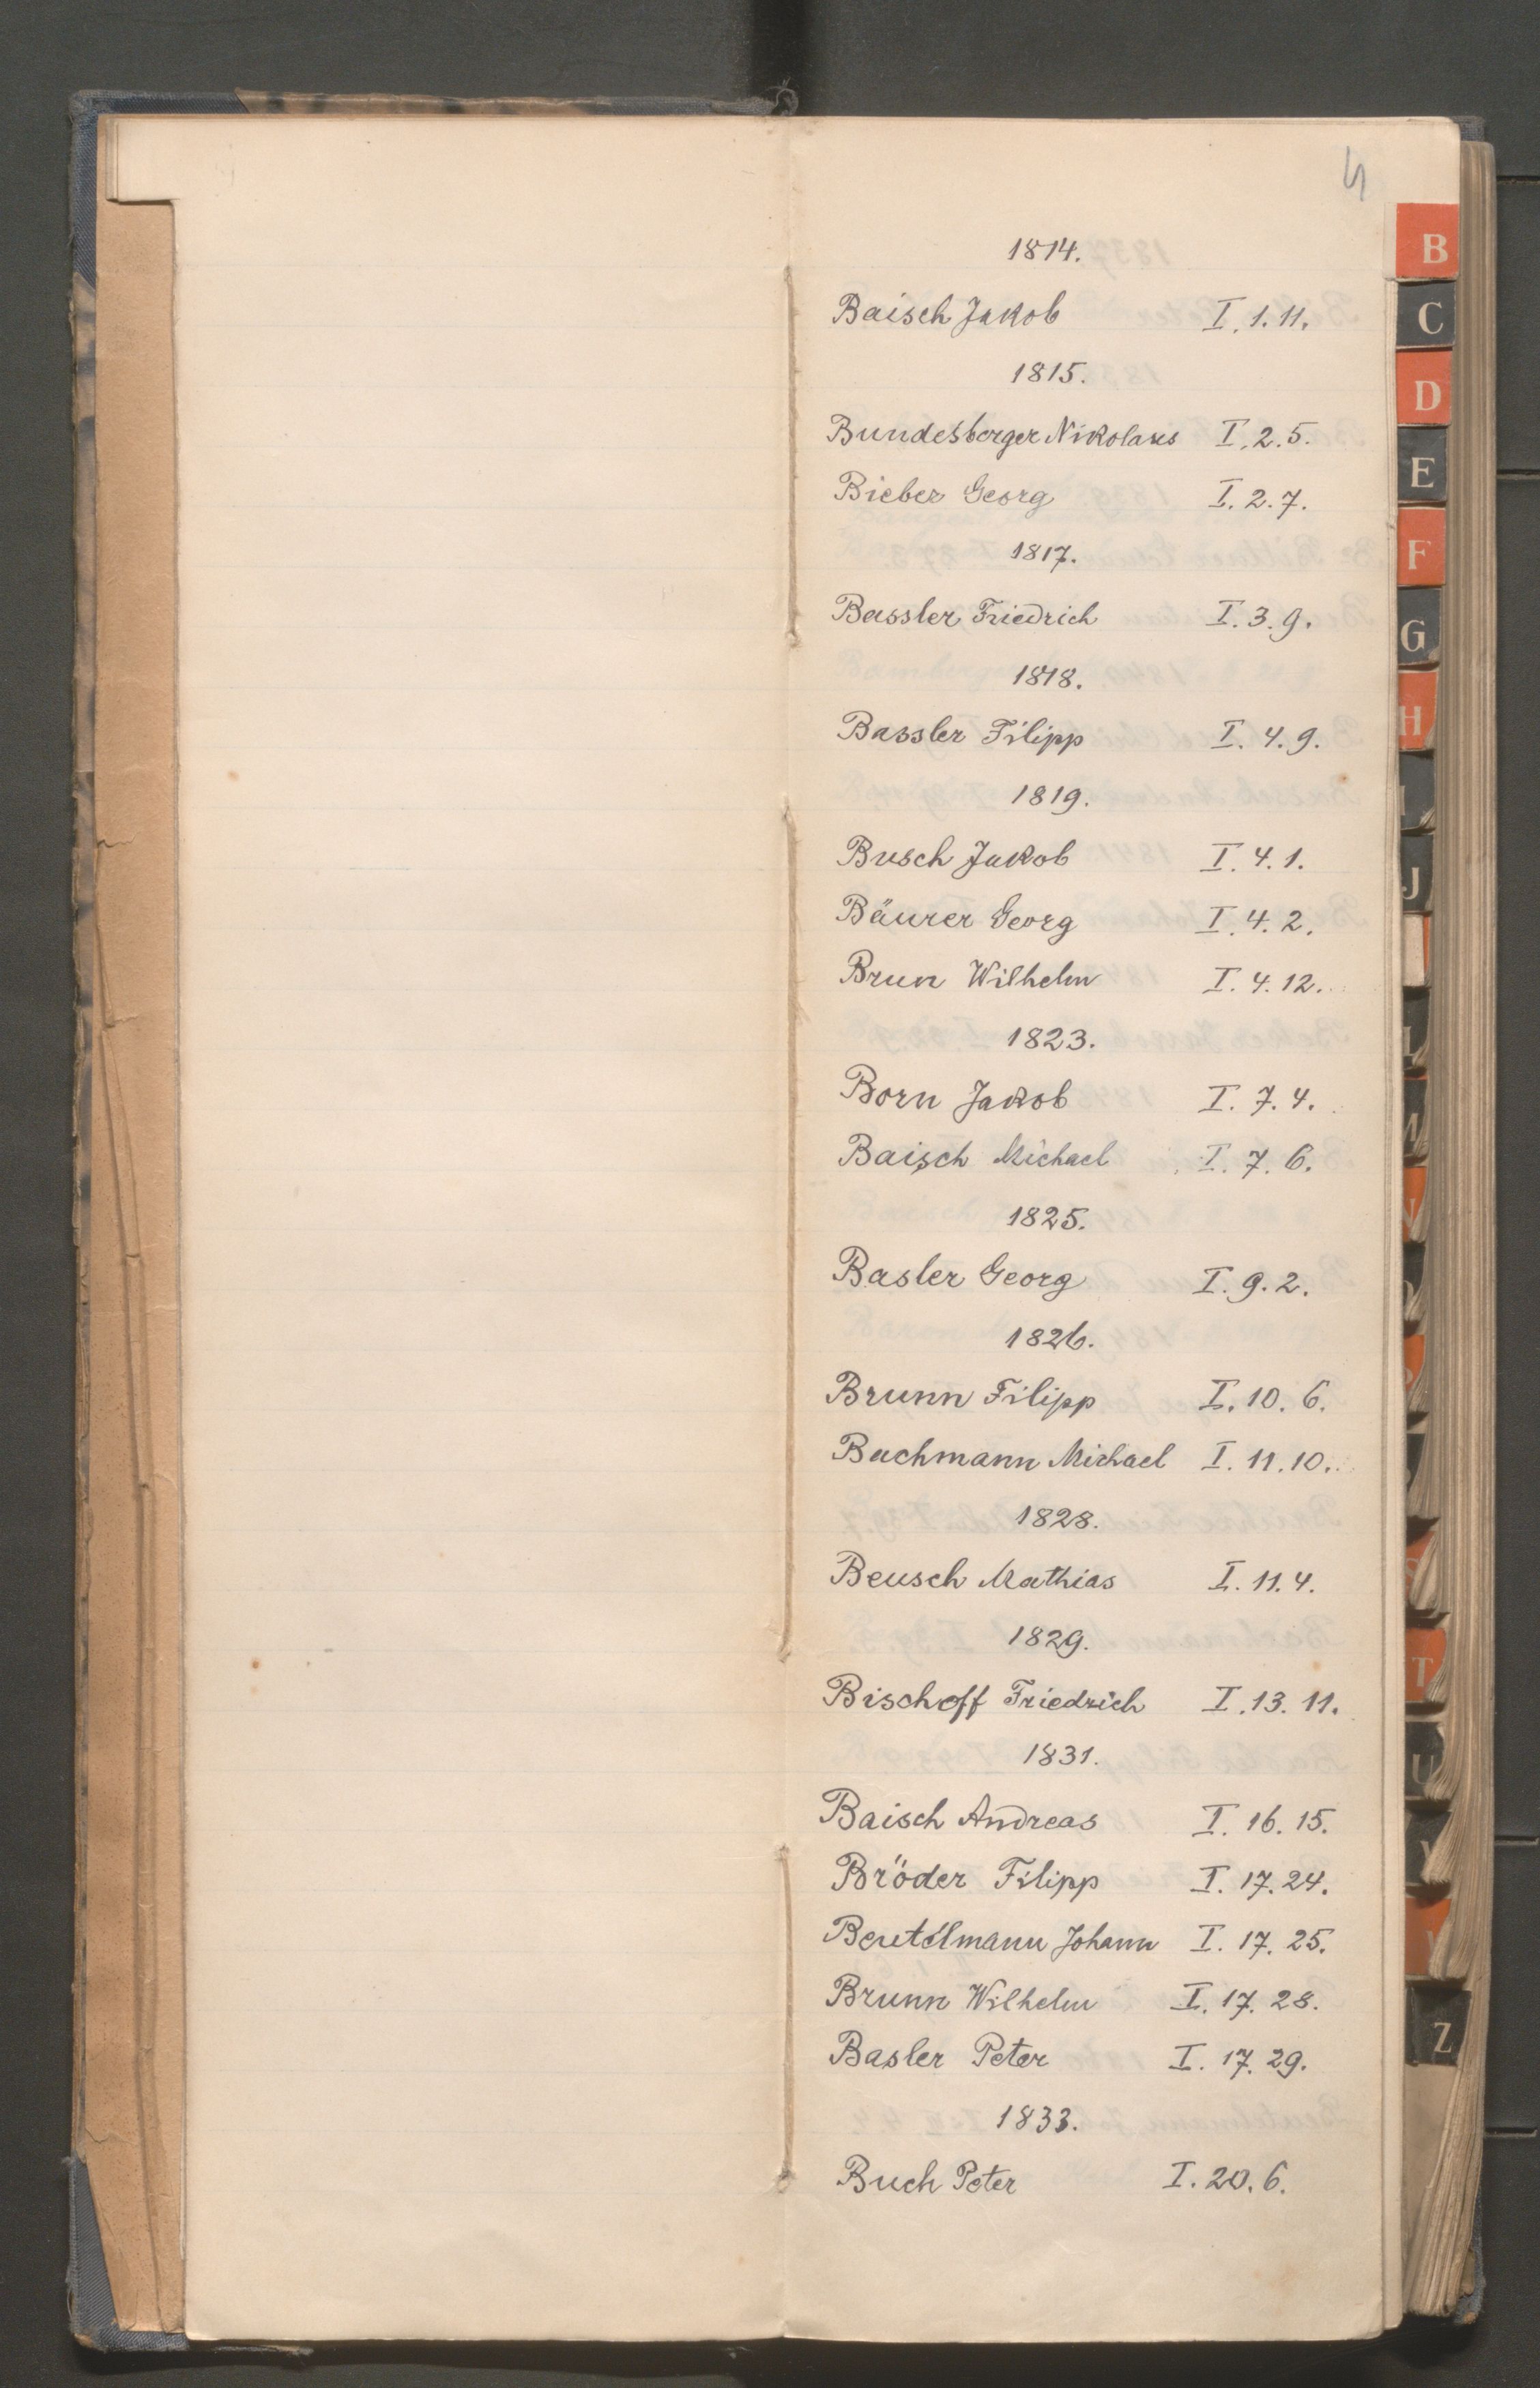 4
1814.
Baisch Jakob I. 1. 11.
1815.
Bundesberger Nikolaus I. 2. 5.
Bieber Georg I. 2. 7.
1817.
Bassler Friedrich I. 3. 9.
1818.
Bassler Filipp I. 4. 9.
1819.
Busch Jakob I. 4. 1.
Bäurer Georg I. 4. 2.
Brun Wilhelm I. 4. 12.
1823.
Born Jakob I. 7. 4.
Baisch Michael I. 7. 6.
1825.
Basler Georg I. 9. 2.
1826.
Brunn Filipp I. 10. 6.
Bachmann Michael I. 11. 10.
1828.
Beusch Mathias I. 11. 4.
1829.
Bischoff Friedrich I. 13. 11.
1831.
Baisch Andreas I. 16. 15.
Bröder Filipp I. 17. 24.
Beutelmann Johann I. 17. 25.
Brunn Wilhelm I. 17. 28.
Basler Peter I. 17. 29.
1833.
Buch Peter I. 20. 6.
B
C
D
E
F
G
H
I
J
L
M
N
T
U
Z